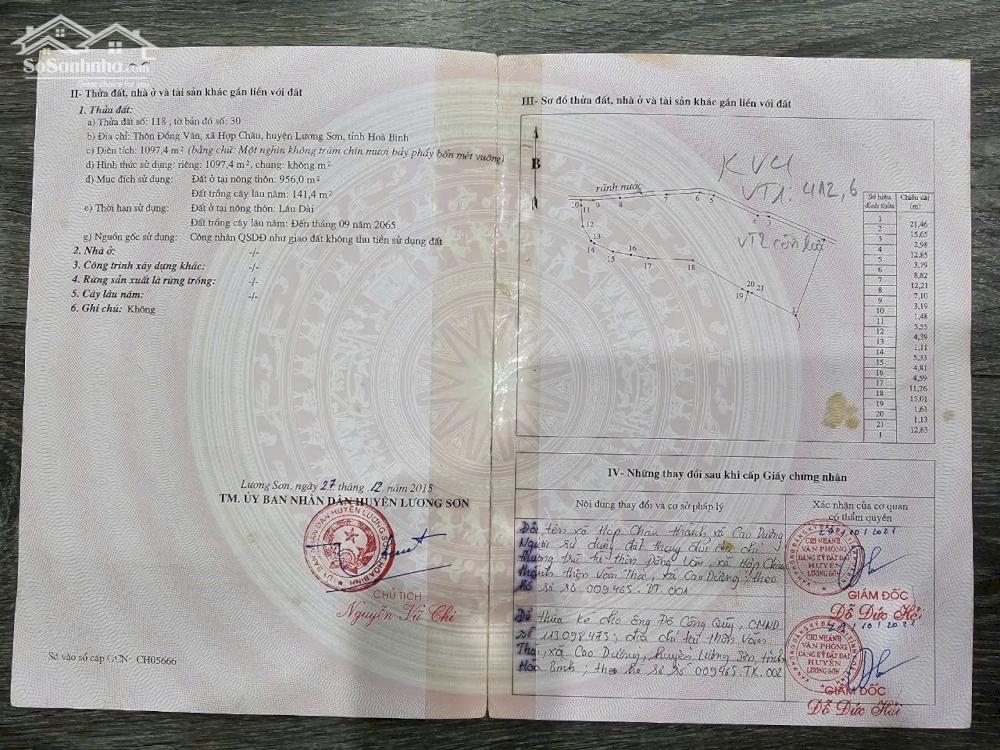 SoSanhnha.com
II- Thửa đất, nhà ở và tài sản khác gắn liền với đất
1. Thửa đất:
a) Thửa đất số: 118 , tờ bản đồ số: 30
b) Địa chỉ: Thôn Đồng Văn, xã Hợp Châu, huyện Lương Sơn, tỉnh Hoà Bình
c) Diện tích: 1097,4 m² (bằng chữ: Một nghìn không trăm chín mươi bảy phẩy bốn mét vuông)
d) Hình thức sử dụng: riêng: 1097,4 m², chung: không m²
đ) Mục đích sử dụng: Đất ở tại nông thôn: 956,0 m²
Đất trồng cây lâu năm: 141,4 m²
e) Thời hạn sử dụng: Đất ở tại nông thôn: Lâu Dài
Đất trồng cây lâu năm: Đến tháng 09 năm 2065
g) Nguồn gốc sử dụng: Công nhận QSDĐ như giao đất không thu tiền sử dụng đất
2. Nhà ở: -/-
3. Công trình xây dựng khác: -/-
4. Rừng sản xuất là rừng trồng: -/-
5. Cây lâu năm: -/-
6. Ghi chú: Không
Lương Sơn, ngày 27 tháng 12 năm 2015
TM. ỦY BAN NHÂN DÂN HUYỆN LƯƠNG SƠN
CHỦ TỊCH
Nguyễn Vũ Chi
Số vào sổ cấp GCN: CH05666
III- Sơ đồ thửa đất, nhà ở và tài sản khác gắn liền với đất
B
KV4
VT1: 412,6
VT2 còn lại
rãnh nước
10 9 8 7 6 5
4 3
11
12
13
14
15 16 17 18
20 21
19
1
Số hiệu đỉnh thửa
Chiều dài (m)
1
21,46
2
15,65
3
2,98
4
12,85
5
3,79
6
8,82
7
12,21
8
7,10
9
3,19
10
1,48
11
5,55
12
4,39
13
1,11
14
5,33
15
4,81
16
4,59
17
11,76
18
15,01
19
1,61
20
1,13
21
12,83
1
IV- Những thay đổi sau khi cấp Giấy chứng nhận
Nội dung thay đổi và cơ sở pháp lý
Xác nhận của cơ quan có thẩm quyền
Đổi tên xã Hợp Châu thành xã Cao Dương
Người sử dụng đất thay đổi địa chỉ
thường trú từ thôn Đồng Văn, xã Hợp Châu
thành thôn Văn Thai, xã Cao Dương; theo
hồ sơ số 009465.DT.001
29/10/2021
CHI NHÁNH
VĂN PHÒNG
ĐĂNG KÝ ĐẤT ĐAI
HUYỆN
LƯƠNG SƠN
GIÁM ĐỐC
Đỗ Đức Hải
Để thừa kế cho ông Đỗ Công Quý, CMND
số 113098473; địa chỉ tại thôn Văn
Thai, xã Cao Dương, huyện Lương Sơn, tỉnh
Hòa Bình; theo hồ sơ số 009465.TK.002
29/10/2021
CHI NHÁNH
VĂN PHÒNG
ĐĂNG KÝ ĐẤT ĐAI
HUYỆN
LƯƠNG SƠN
GIÁM ĐỐC
Đỗ Đức Hải